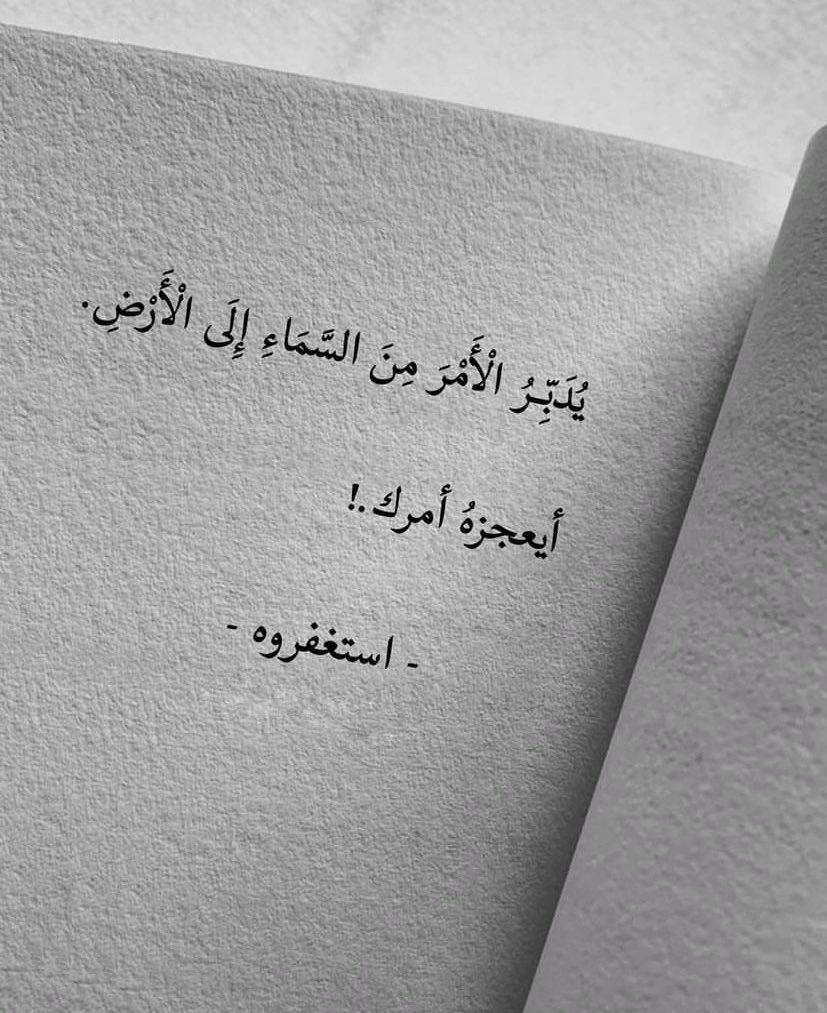 يُدَبِّرُ الْأَمْرَ مِنَ السَّمَاءِ إِلَى الْأَرْضِ.
أيعجزهُ أمرك.!
- استغفروه -